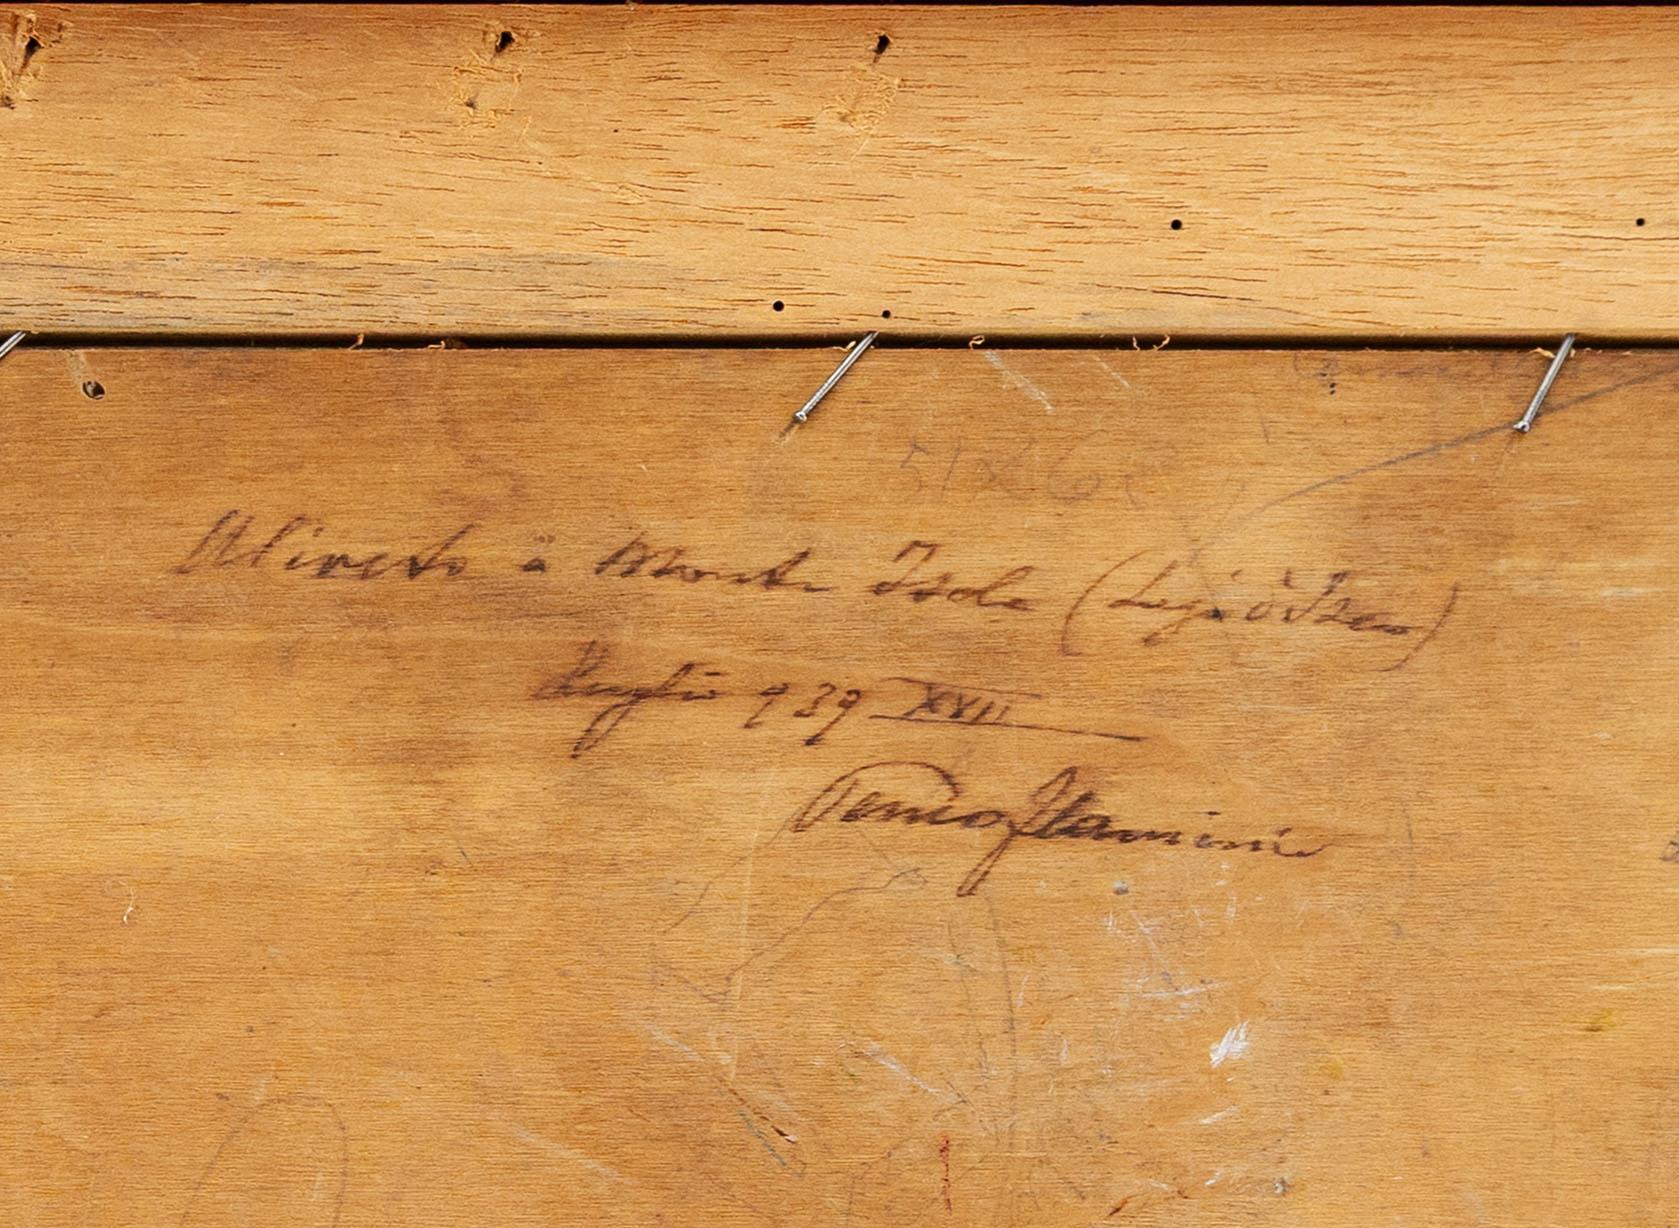 51x6
Uliveto a Monte Isola (Lago d'Iseo)
Luglio 939 XVII
Flaminio